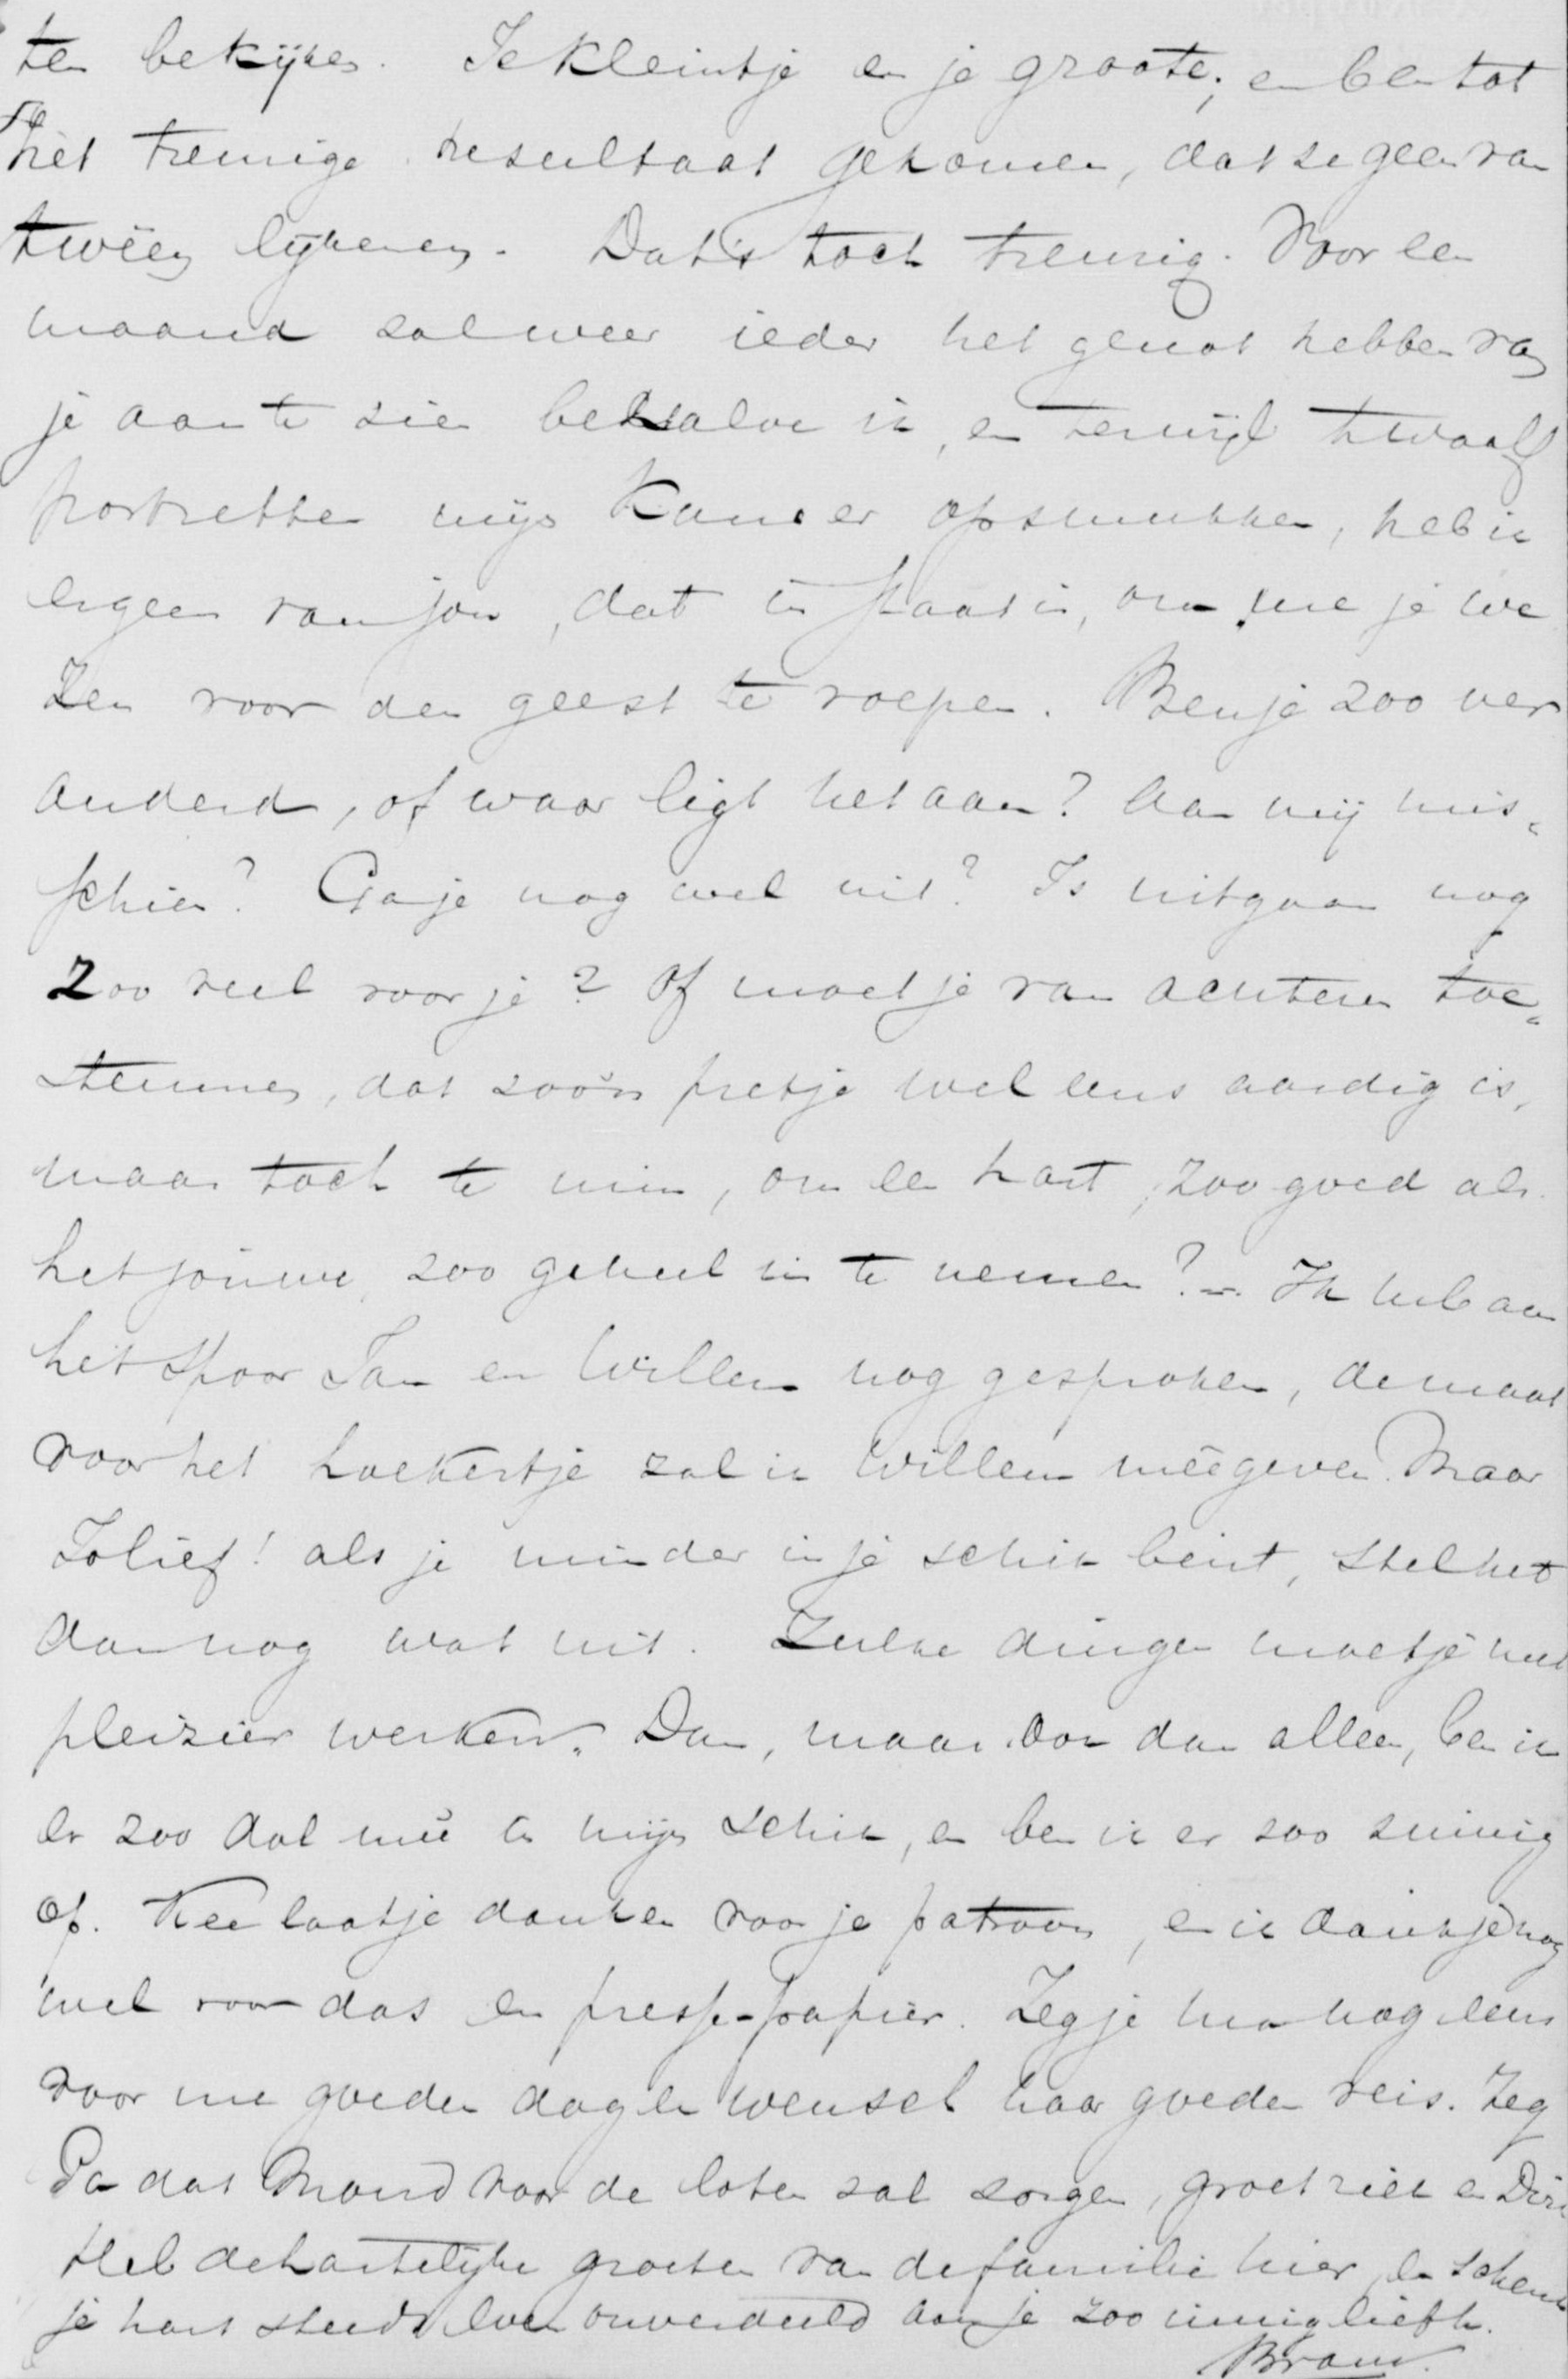 ten bekijken. Je kleintje en je groote; en ben tot
het treurige resultaat gekomen, dat ze geen van
tweën lijkenen. Dat is toch treurig. Voor een
maand zal weer ieder het genot hebben van
je aan te zien behalve ik, en terwijl twaalf
portretten mijn Kamer opsmukken, heb ik
er geen van jou, dat in staat is, om me je we
zen voor den geest te roepen. Ben je zoo ver
anderd, of waar ligt het aan? Aan mij mis„
schien? Ga je nog wel uit? Is uitgaan nog
zoo veel voor je? Of moet je van achteren toe„
stemmen, dat zoo'n pretje wel eens aardig is,
maar toch te min, om een hart, zoo goed als
het jouwe, zoo geheel in te nemen? Ik heb aan
het Spoor Jan en Willem nog gesproken, de maat
voor het hoekertje zal ik Willem meêgeven. Maar
Zolief! als je minder in je schik bent, stel het
dan nog wat uit. Zulke dingen moet je met
pleizier werken. Dan, maar dan alleen, ben ik
er zoo dol meê in mijn schik, en ben ik er zoo zuinig
op. Kee laat je danken voor je patroon, en ik dank je nog
wel voor das en presse-papier. Zeg je ma nog eens
voor me goeden dag en wensch haar goeden reis. Zeg
Pa dat Maud voor de loten zal zorgen, groet Riek en Dirk
Heb de hartelijke groeten van de familie hier, en schenk
je hart steeds even onverdeeld aan je zoo innig liefh.
Bram.